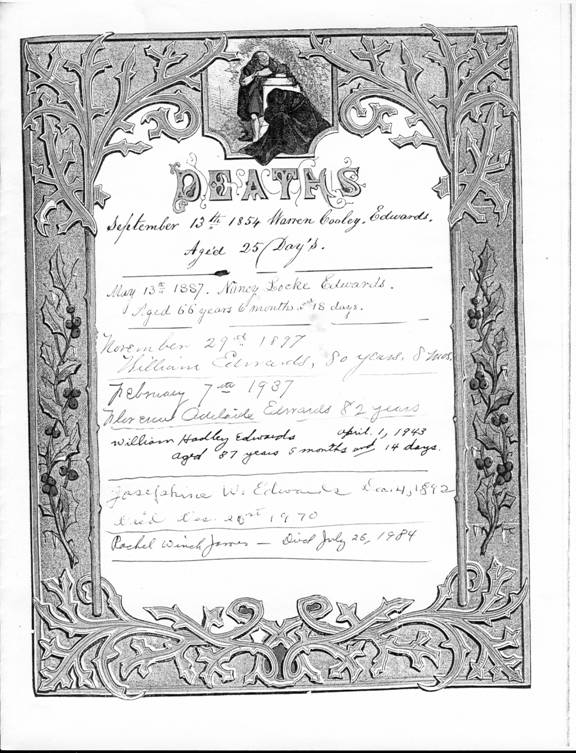 DEATHS
September 13th 1854 Warren Cooley. Edwards.
Aged 25 Day's.
May 13th 1887. Nancy Locke Edwards.
Aged 66 years 6 months and 18 days.
November 29th 1897
William Edwards, 80 years. 8 mos.
February 7th 1937
Florence Adelaide Edwards 82 years
William Hadley Edwards april. 1, 1943
aged 87 years 5 months and 14 days.
Josephine W. Edwards 4, 1892
Died Dec. 1970
Rachel Winch James — Died July 26, 1984